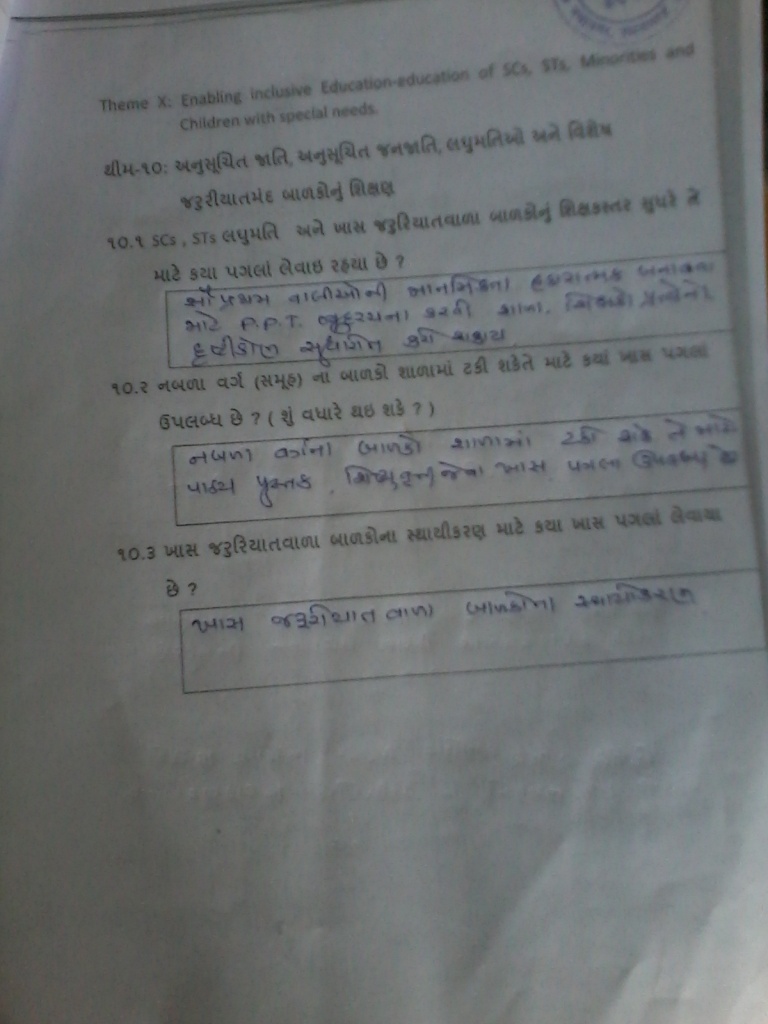 Theme X: Enabling inclusive Education-education of SCs, STs, Minorities and
Children with special needs.
થીમ-૧૦: અનુસૂચિત જાતિ, અનુસૂચિત જનજાતિ, લઘુમતિઓ અને વિશેષ
જરૂરીયાતમંદ બાળકોનું શિક્ષણ
૧૦.૧ SCs , STs લઘુમતિ અને ખાસ જરુરિયાતવાળા બાળકોનું શિક્ષકસ્તર સુધરે તે
માટે કયા પગલાં લેવાઇ રહયા છે ?
સૌ પ્રથમ વાલીઓની માનસિકતા હકારાત્મક બનાવવા
માટે P.P.T. વ્યુહરચના કરવી શાળા, શિક્ષકો પ્રત્યેનો
દ્રષ્ટીકોણ કરી શકાય
૧૦.૨ નબળા વર્ગ (સમૂહ) ના બાળકો શાળામાં ટકી શકેતે માટે કયાં ખાસ પગલાં
ઉપલબ્ધ છે ? ( શું વધારે થઇ શકે ? )
નબળા વર્ગના બાળકો શાળામાં ટકી શકે તે માટે
પાઠ્ય પુસ્તક , શિષ્યવૃત્તિ જેવા ખાસ પગલા ઉપલબ્ધ છે
૧૦.૩ ખાસ જરુરિયાતવાળા બાળકોના સ્થાયીકરણ માટે કયા ખાસ પગલાં લેવાયા
છે ?
ખાસ જરૂરીયાત વાળા બાળકોના સ્થાયીકરણ